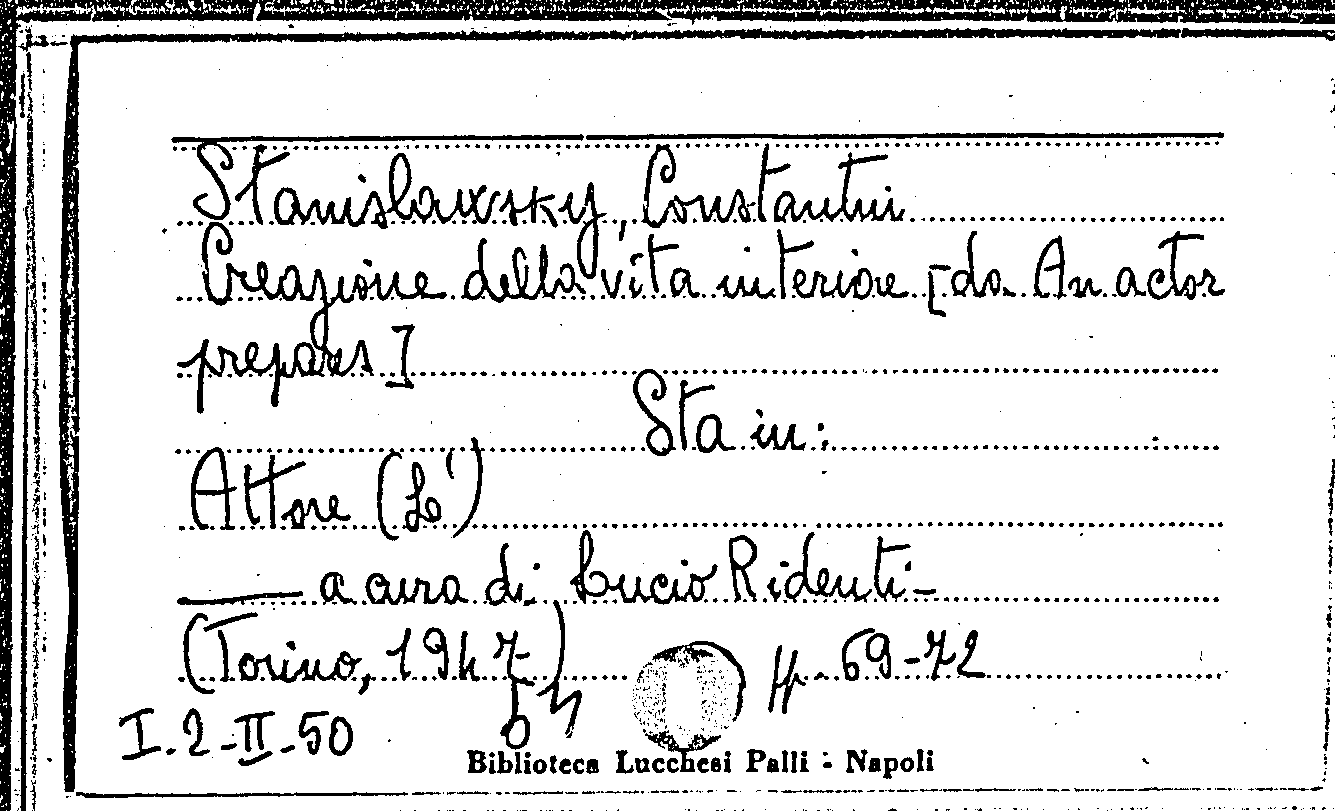 Stanislawsky, Constantin
Creazione della vita interiore [da An actor
prepares]
Sta in:
Attore (L')
— a cura di Lucio Ridenti -
(Torino, 1947)
pp. 69-72
I.2-II-50
Biblioteca Lucchesi Palli - Napoli